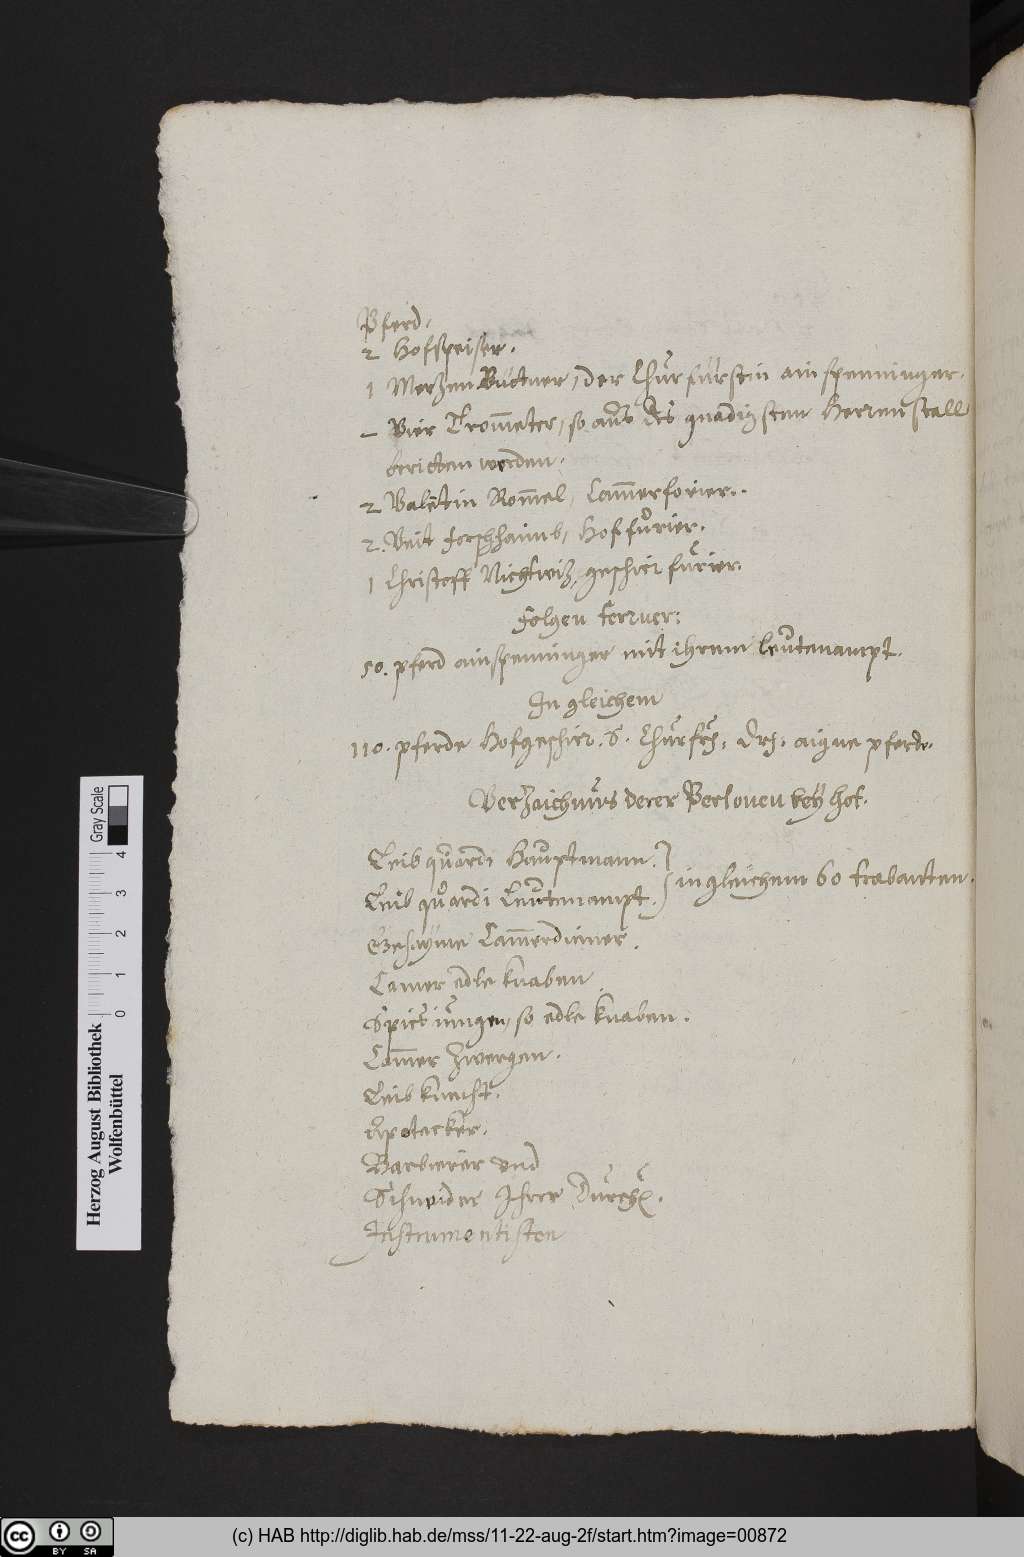 Pferd.
2 Hofspeiser.
1 Merzen Büttner, der Churfürstin ainspenninger.
– Vier Trom̄eter, so aus des gnädigsten Herren stall
beritten werden.
2 Valētin Rom̄el, Cam̄erforier.
2. Veit forchhaimb, Hoffurier.
1 Christoff Nichtwiz, geschirr furier.
Folgen ferner:
50. pferd ainspenninger mit ihrem leutenampt.
In gleichem
110. pferde Hofgeschirr. S. Churfrh: drh. aigne pferde.
Verzaichnus derer Persouen bey hof.
Leib quardi Hauptmann.
Leib quardi Leutenampt. in gleichem 60 trabanten.
Gehayme Cam̄erdiener.
Cam̄er edle knaben
Spies iungen, so edle knaben.
Cam̄er Zwergen.
Leib knecht.
Apotecker.
Barbierer vnd
Schneider Ihrer Durchl.
Instrumentisten
Herzog August Bibliothek
Wolfenbüttel
Gray Scale
0 1 2 3 4
(c) HAB http://diglib.hab.de/mss/11-22-aug-2f/start.htm?image=00872
cc BY SA